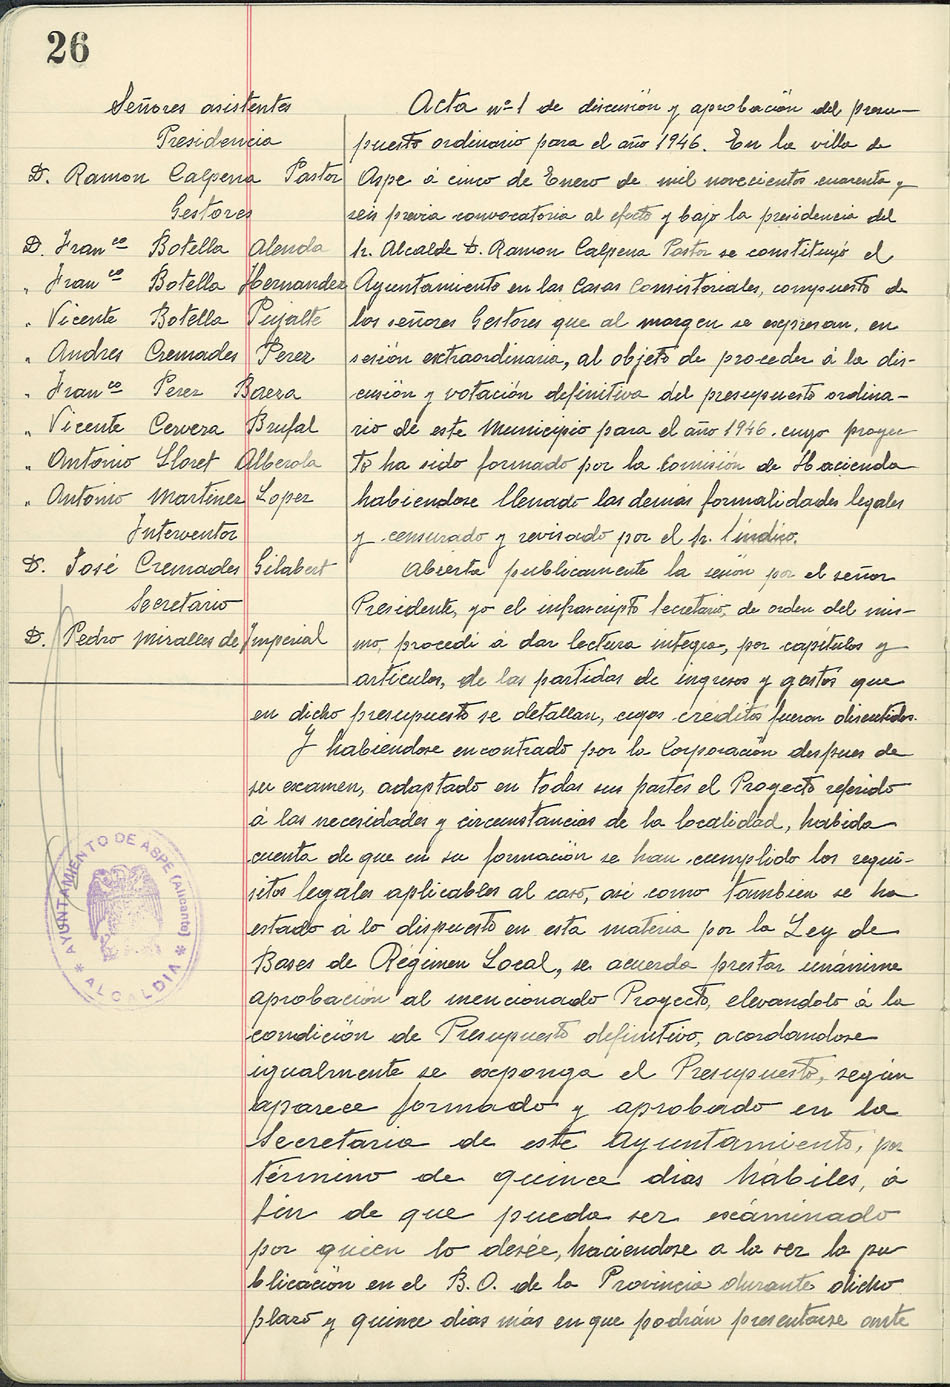 26
Señores asistentes
Presidencia
D. Ramon Calpena Pastor
Gestores
D. Franco Botella Alenda
" Franco Botella Hernandez
" Vicente Botella Pujalte
" Andres Cremades Perez
" Franco Perez Baeza
" Vicente Cervera Brufal
" Antonio Lloret Alberola
" Antonio Martinez Lopez
Interventor
D. José Cremades Gilabert
Secretario
D. Pedro Miralles de Imperial
Acta nº 1 de discusión y aprobación del presu-
puesto ordinario para el año 1946. En la villa de
Aspe á cinco de Enero de mil novecientos cuarenta y
seis previa convocatoria al efecto y bajo la presidencia del
Sr. Alcalde D. Ramon Calpena Pastor se constituyó el
Ayuntamiento en las Casas Consistoriales, compuesto de
los señores Gestores que al margen se expresan, en
sesión extraordinaria, al objeto de proceder á la dis-
cusión y votación definitiva del presupuesto ordina-
rio de este Municipio para el año 1946. cuyo proyec
to ha sido formado por la Comisión de Hacienda
habiendose llenado las demás formalidades legales
y censurado y revisado por el Sr. Síndico.
Abierta publicamente la sesión por el señor
Presidente, yo el infrascripto Secretario, de orden del mis-
mo, procedi á dar lectura integra, por capítulos y
articulos, de las partidas de ingresos y gastos que
en dicho presupuesto se detallan, cuyos créditos fueron discutidos.
Y habiendose encontrado por la Corporación despues de
su examen, adaptado en todas sus partes el Proyecto referido
á las necesidades y circunstancias de la localidad, habida
cuenta de que en su formación se han cumplido los requi-
sitos legales aplicables al caso, asi como tambien se ha
estado á lo dispuesto en esta materia por la Ley de
Bases de Régimen Local, se acuerda prestar unánime
aprobación al mencionado Proyecto, elevandolo á la
condición de Presupuesto definitivo, acordandose
igualmente se exponga el Presupuesto, según
aparece formado y aprobado en la
Secretaria de este Ayuntamiento, por
término de quince dias hábiles, á
fin de que pueda ser exáminado
por quien lo desée, haciendose a la vez la pu
blicación en el B.O. de la Provincia durante dicho
plazo y quince dias más en que podrán presentarse ante
AYUNTAMIENTO DE ASPE (Alicante)
* ALCALDIA *